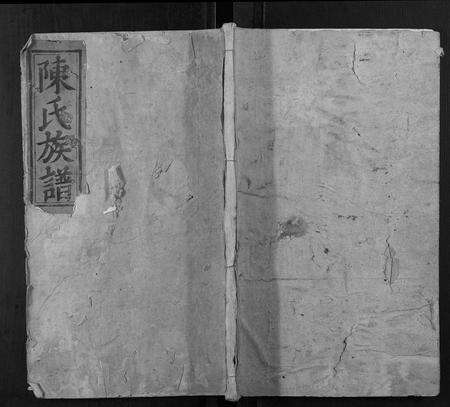 陳氏族譜